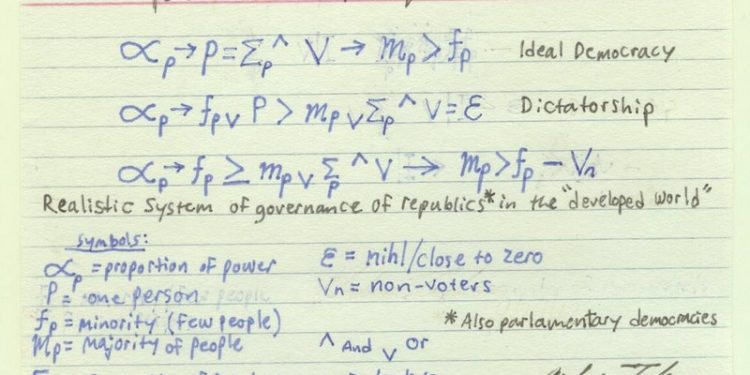 ∝p → P = Σp ^ V → mp > fp Ideal Democracy
∝p → fp ∨ P > mp ∨ Σp ^ V = ℰ Dictatorship
∝p → fp ≥ mp ∨ Σp ^ V → mp > fp − Vn
Realistic System of governance of republics* in the "developed world"
Symbols:
∝p = proportion of power
P = one person
fp = minority (few people)
Mp = majority of people
ℰ = nihl/close to zero
Vn = non-voters
*Also parliamentary democracies
^ And ∨ Or